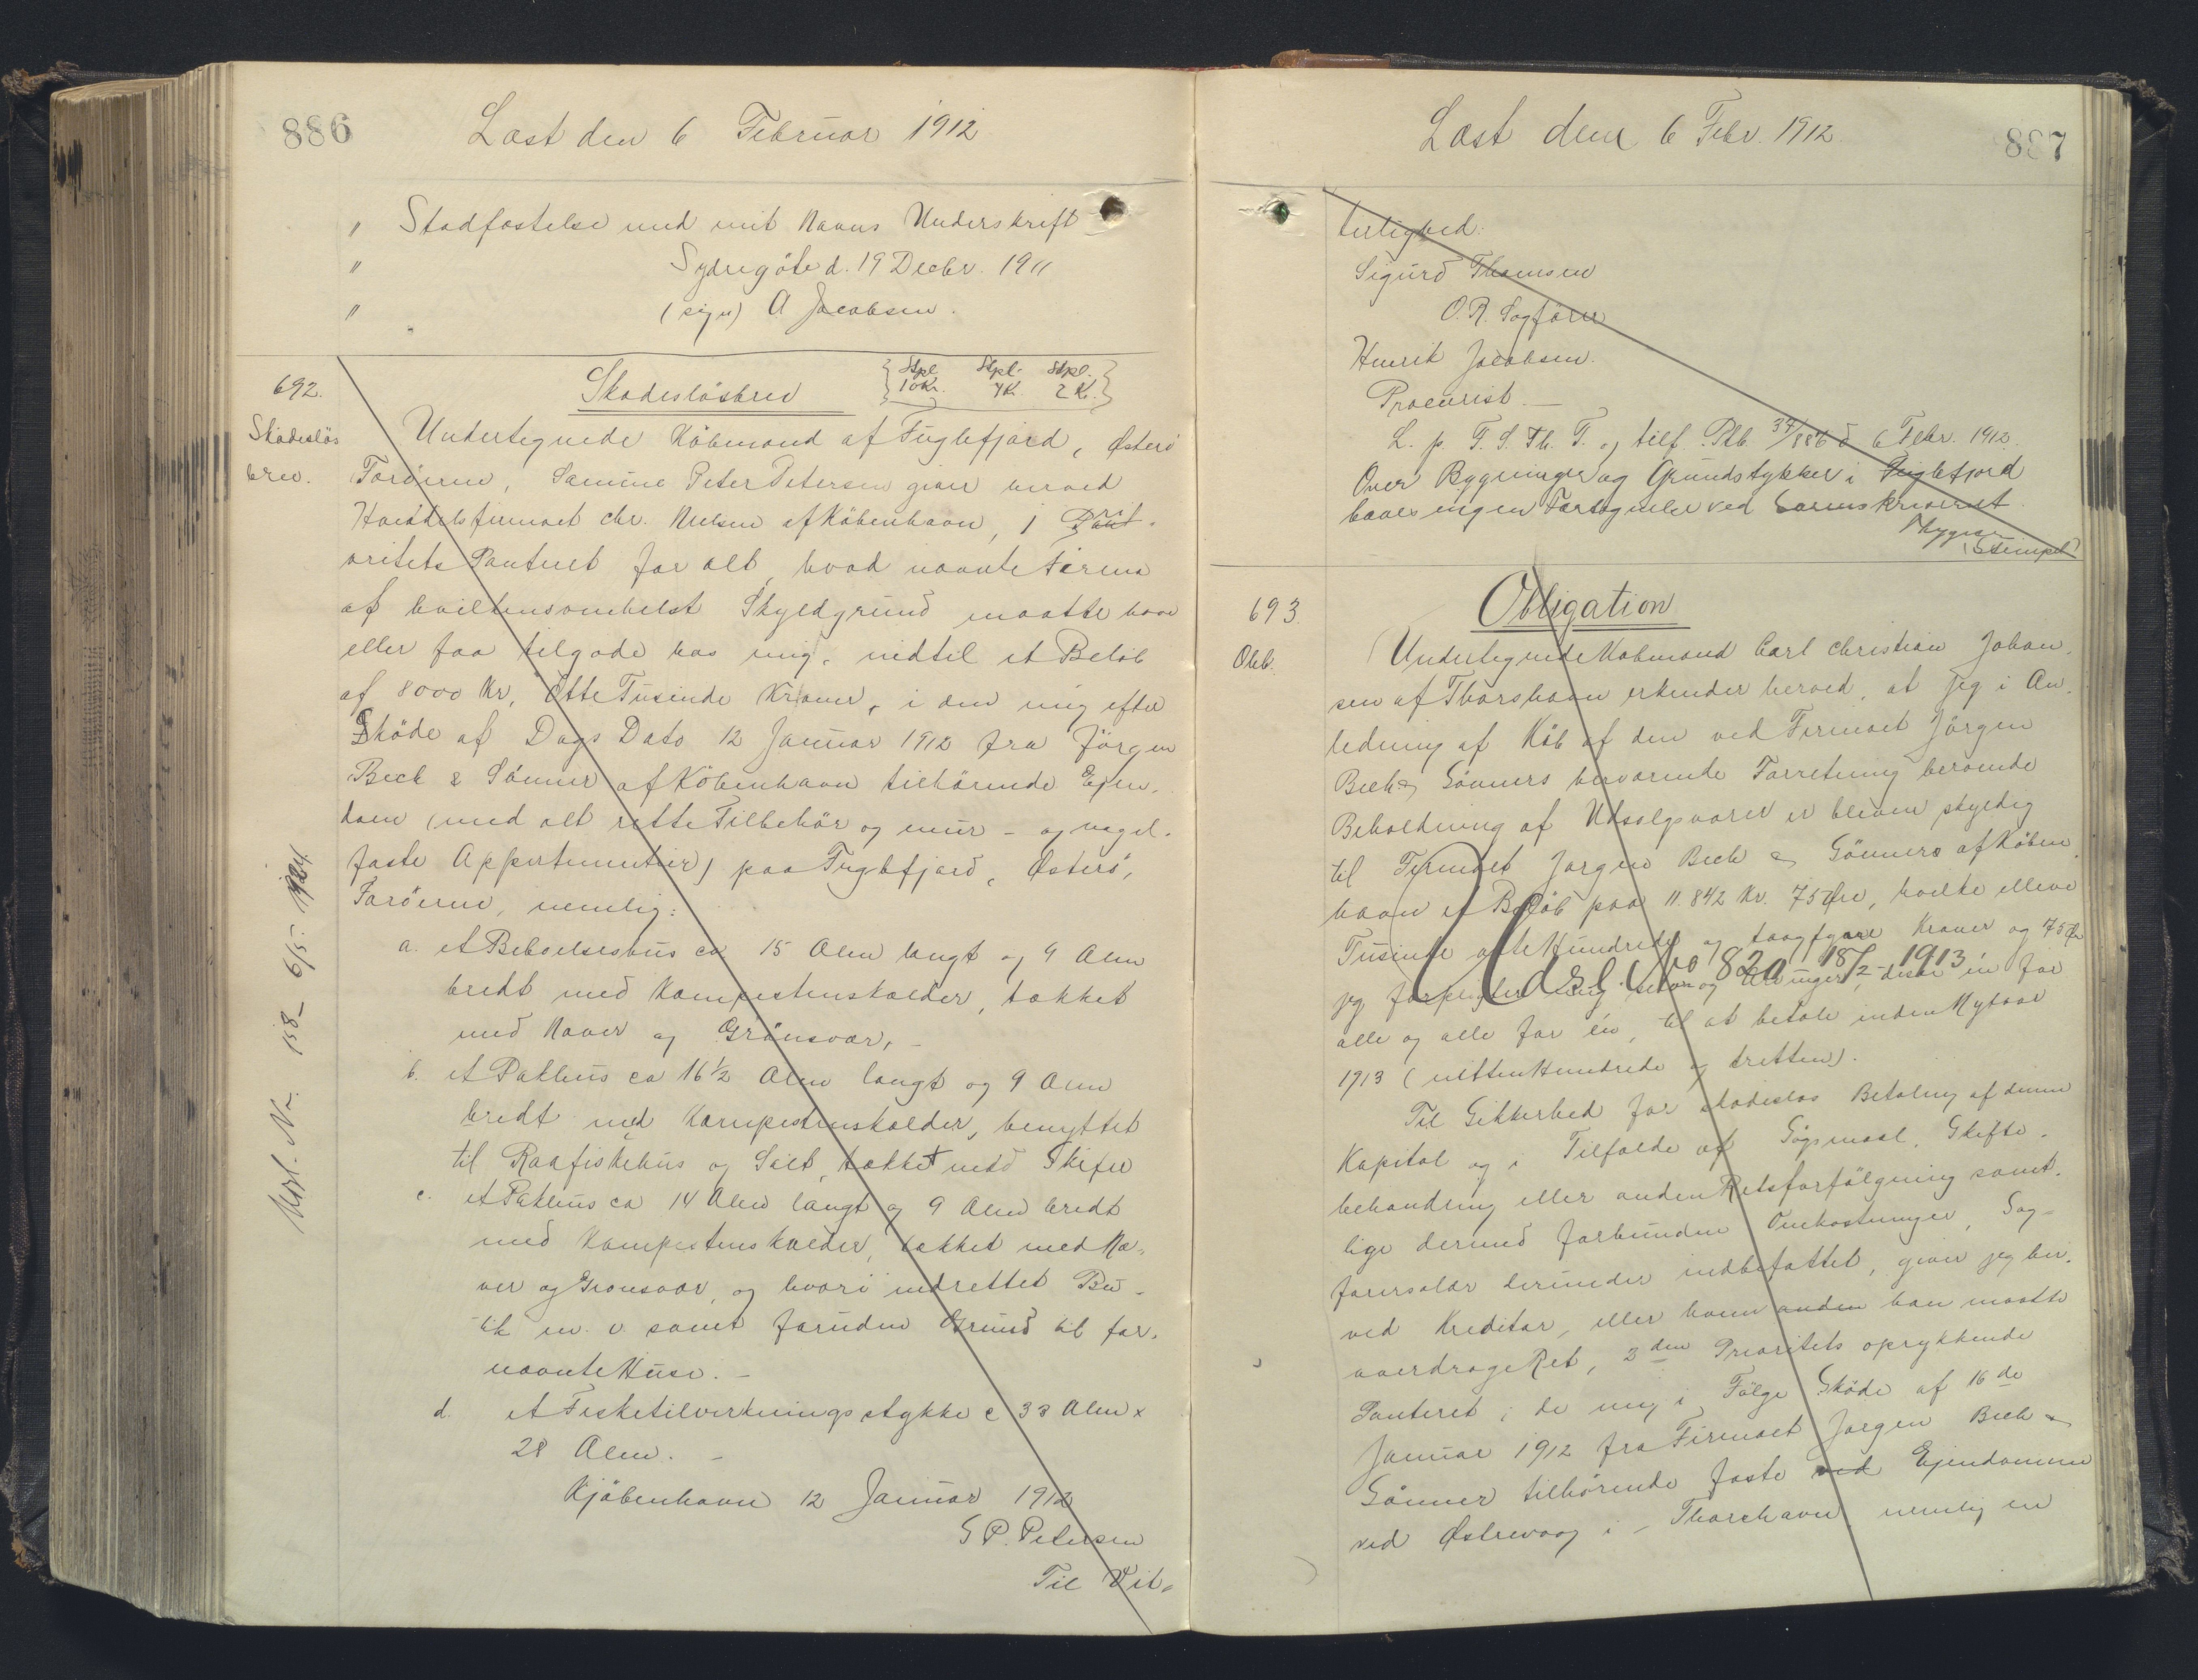 886
Læst den 6 Februar 1912
" Stadfæstelse med mit Navns Underskrift
" Sydrugöte d. 19 Decbr. 1911
" (sign) A Jacobsen.
692.
Skadeslös
brev.
Skadeslösbrev
Stpl. Stpl. Stpl.
10 Kr. 4 K. 2 K.
Undertegnede Købmand af Fuglefjard, Österö
Færöerne, Samme Peter Petersen giver herved
Handelsfirmaet chr. Nielsen af København, 1 Pri
oritets Panteret for alt, hvad nævnte Firma
af hvilkensomhelst Skyldgrund maatte have
eller faa tilgode hos mig, indtil et Beløb
af 8000 Kr, Otte Tusinde Kroner, i den mig efter
Skøde af Dags Dato 12 Januar 1912 fra Jörgen
Bech & Sönner af Köbenhavn tilhörende Ejen-
dom (med alt rette Tilbehör og mur- og nagel-
faste Appertinentier) paa Fuglefjard, Österö,
Færöerne, nemlig:
a. et Beboelseshus ca 15 Alen langt og 9 Alen
bredt med Kampestenskælder, tækket
med Næver og Grönsvær,
b. et Pakhus ca 16½ Alen langt og 9 Alen
bredt med Kampestenskælder, benyttet
til Raafiskehus og Salt, tækket med Skifer
c. et Pakhus ca 14 Alen langt og 9 Alen bredt
med Kampestenskælder, tækket med Næ-
ver og Grønsvær, og hvori indrettet Bu-
tik m. v. samt foruden Grund til for-
nævnte Huse.-
d. et Fisketilvirkningsstykke c 33 Alen x
28 Alen.-
Kjöbenhavn 12 Januar 1912
S P. Petersen
Til Vit-
158- 6/5. 1924
Læst den 6 Febr. 1912.
887
terlighed:
Sigurd Thomsen
O. R. Sagfører
Henrik Jacobsen.
Procurist -
L. p. F. S. Th. T. og tilf. Ptb. 37/886 d 6 Febr. 1912.
Over Bygninger og Grundstykker i Fuglefjord
haves ingen Fortegnelse ved Sorenskriveriet.
Thygesen
(Stempel)
693.
Obl.
Obligation
Undertegnede Købmand Carl Christian Johan-
sen af Thorshavn erkender herved, at jeg i An-
ledning af Køb af den ved Firmaet Jörgen
Bech & Sönners herværende Forretning beroende
Beholdning af Udsalgsvarer er bleven skyldig
til Firmaet Jørgen Bech & Sönners af Köben
havn et Beløb paa 11.842 Kr. 75 Øre, hvilke elleve
Tusinde otte Hundrede og toogfyrre Kroner og 75 Ør
jeg forpligter mig selv og Arvinger, disse én for
alle og alle for én, til at betale inden Nytaar
1913 (nitten Hundrede og tretten).
Til Sikkerhed for skadeslos Betaling af denne
Kapital og i Tilfælde af Sögsmaal, Skifte-
behandling eller anden Retsforfölgning samt-
lige dermed forbundne Omkostninger, Sag-
førersalær derunder indbefattet, giver jeg her-
ved Kreditor, eller hvem anden han maatte
overdrage Ret, 3den Prioritets oprykkende
Panteret i de mig i Følge Sköde af 16de
Januar 1912 fra Firmaet Jørgen Bech &
Sönner tilhörende faste ved Ejendomme
ved Østrevaag i - Thorshavn nemlig en
Udsl No 820 18/2-1913